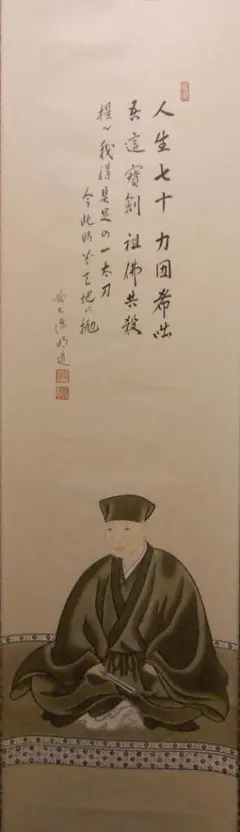 人生七十力囲希咄
吾這寶劍祖佛共殺
提ル我得具足の一太刀
今此時ぞ天地に抛